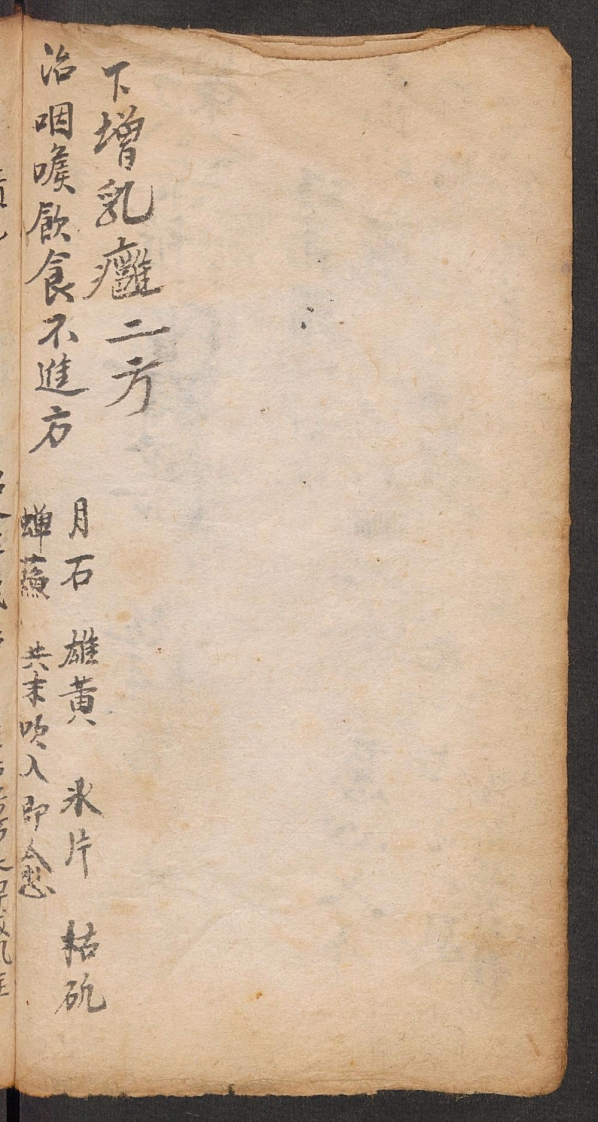 下增乳癰二方
治咽喉飲食不進方
月石 雄黃 氷片 枯矾
蟬蘓 共末吹入即愈